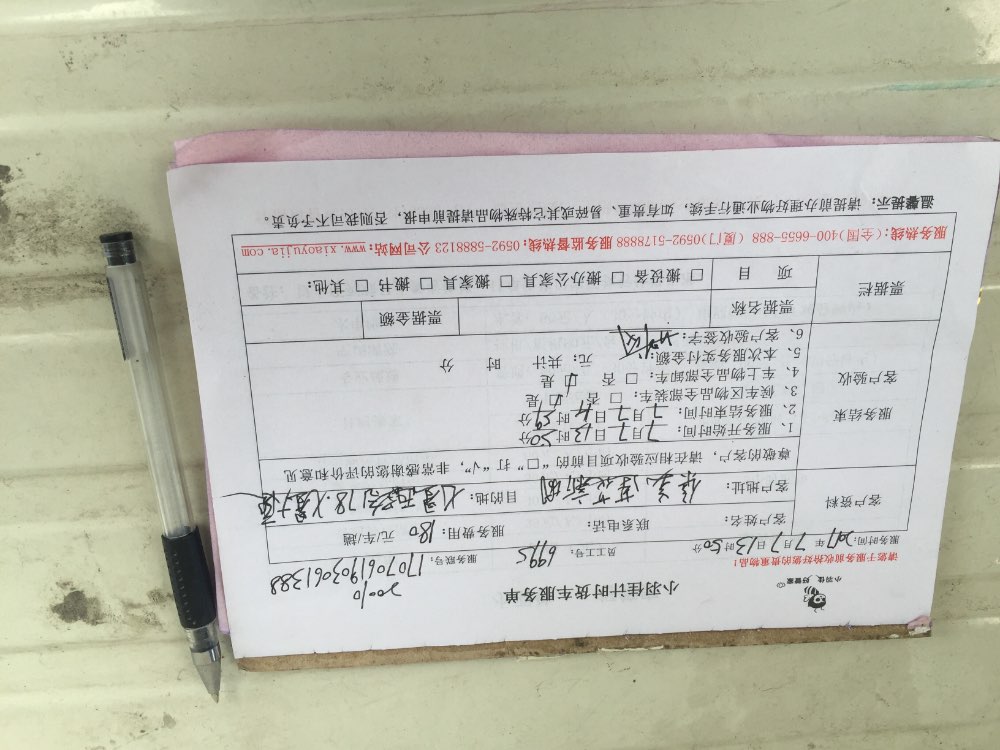 小羽佳 好管家
小羽佳计时货车服务单
20010
请您于服务前收拾好您的贵重物品!
服务时间: 2017年7月7日13时50分 员工号: 6995 服务账号: 1707061903061388
客户资料
客户姓名: 联系电话: 服务费用: 180 元/车/趟
客户地址: 目的地:
尊敬的客户,请在相应验收项目前的“□”打“√”,非常感谢您的评价和意见
服务结束
客户验收
1、服务开始时间: 7月7日13时50分
2、服务结束时间: 7月7日14时59分
3、候车区物品全部装车: □ 否 □ 是
4、车上物品全部卸车: □ 否 □ 是
5、本次服务实付金额: 元; 共计 时 分
6、客户验收签字:
票据栏
票据名称 票据金额
项 目 □ 搬设备 □ 搬办公家具 □ 搬家具 □ 搬书 □ 其他:
服务热线:(全国)400-6655-888 (厦门)0592-5178888 服务监督热线:0592-5888123 公司网站:www.xiaoyujia.com
温馨提示:请提前办理好物业通行手续,如有贵重、易碎或其它特殊物品请提前申报,否则我司可不予负责。